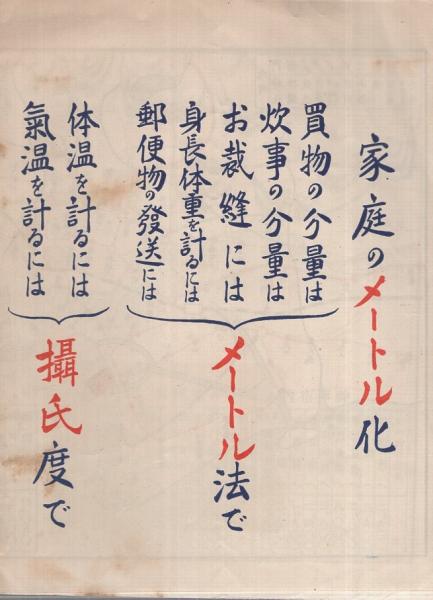 家庭のメートル化
買物の分量は
炊事の分量は
お裁縫には
身長体重を計るには
郵便物の發送には
メートル法で
体温を計るには
氣温を計るには
攝氏度で